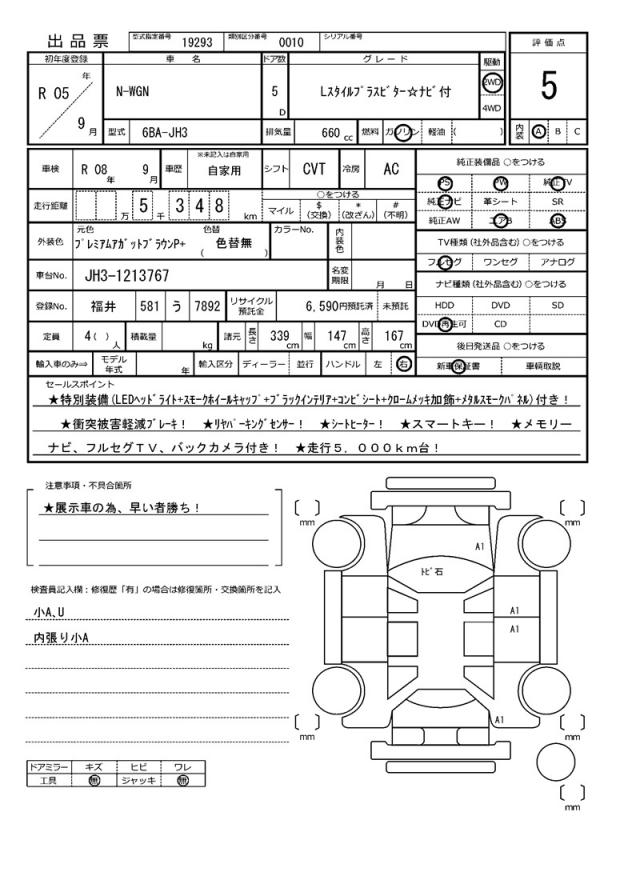 出品票 型式指定番号 19293 類別区分番号 0010 シリアル番号
初年度登録 車名 ドア数 グレード 駆動 評価点
R 05 年 9 月 N-WGN 5 D Lスタイルプラスビター☆ナビ付 2WD 4WD 5
型式 6BA-JH3 排気量 660 cc 燃料 ガソリン 軽油 ( ) 内装 A B C
車検 R 08 年 9 月 車歴 ※未記入は自家用 自家用 シフト CVT 冷房 AC
走行距離 万 5 千 3 4 8 km
○をつける
マイル $(交換) *(改ざん) #(不明)
外装色 元色 プレミアムアガットブラウンP+ 色替 ( 色替無 ) カラーNo. 内装色
車台No. JH3-1213767 名変期限 月 日
登録No. 福井 581 う 7892 リサイクル預託金 6,590円預託済 未預託
定員 4( ) 人 積載量 kg 諸元 長さ 339 cm 幅 147 cm 高さ 167 cm
輸入車のみ⇒ モデル年式 年 輸入区分 ディーラー ・ 並行 ハンドル 左 右
純正装備品 ○をつける
PS PW 純正TV
純正ナビ 革シート SR
純正AW エアB ABS
TV種類 (社外品含む) ○をつける
フルセグ ワンセグ アナログ
ナビ種類 (社外品含む) ○をつける
HDD DVD SD
DVD再生可 CD
後日発送品 ○をつける
新車保証書 車輌取説
セールスポイント
★特別装備(LEDヘッドライト+スモークホイールキャップ+ブラックインテリア+コンビシート+クロームメッキ加飾+メタルスモークパネル)付き!
★衝突被害軽減ブレーキ! ★リヤパーキングセンサー! ★シートヒーター! ★スマートキー! ★メモリー
ナビ、フルセグTV、バックカメラ付き! ★走行5,000km台!
注意事項・不具合箇所
★展示車の為、早い者勝ち!
検査員記入欄:修復歴「有」の場合は修復箇所・交換箇所を記入
小A、U
内張り小A
ドアミラー キズ ヒビ ワレ
工具 無 ジャッキ 無
mm
mm
A1
トビ石
A1
A1
A1
mm
mm
mm